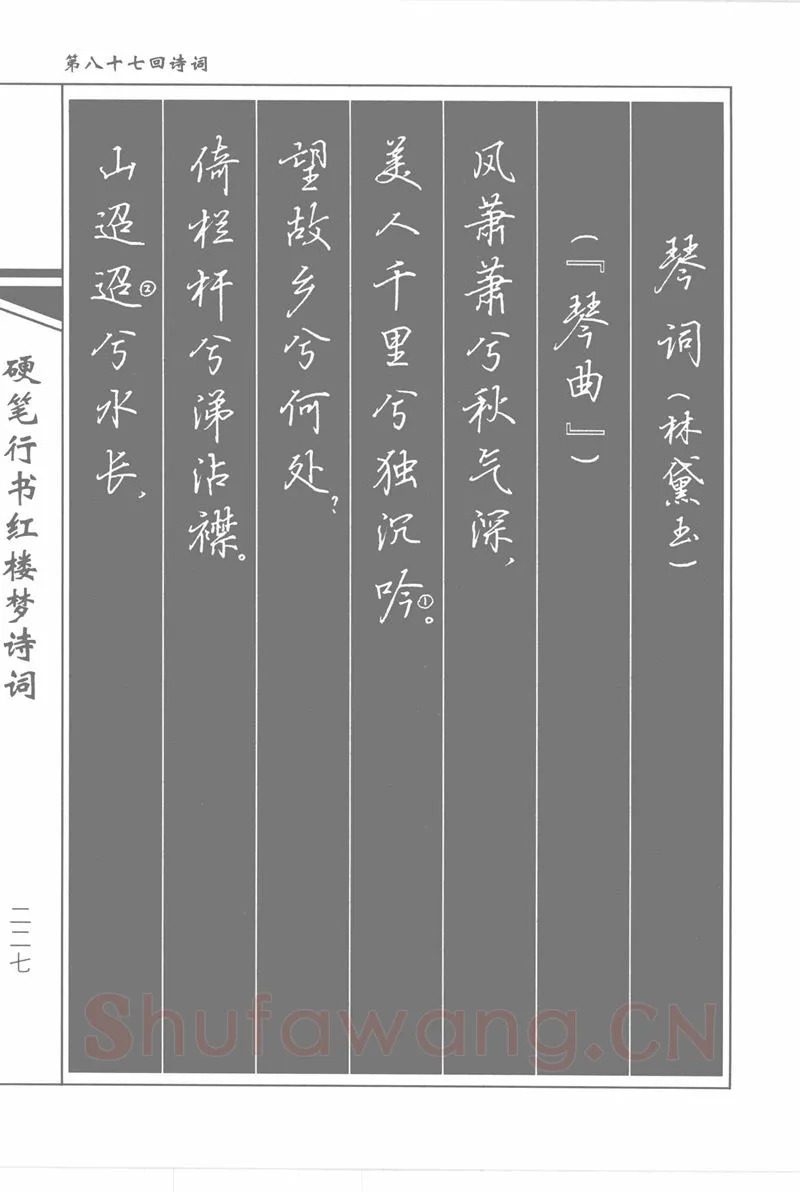 第八十七回诗词
琴词(林黛玉)
(『琴曲』)
风萧萧兮秋气深,
美人千里兮独沉吟①。
望故乡兮何处?
倚栏杆兮涕沾襟。
山迢迢②兮水长,
硬笔行书红楼梦诗词
二二七
Shufawang.CN